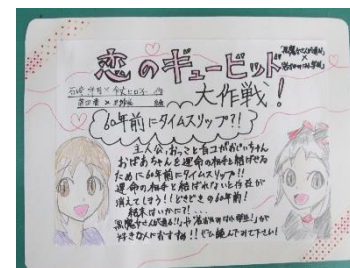 恋のキューピッド
「黒魔女さんが通る!!」
×
「若おかみは小学生!」
大作戦!
石崎洋司×令丈ヒロ子 作
60年前にタイムスリップ?!
主人公、おっこと目コがおじいちゃん
おばあちゃんを運命の相手と結ばせる
ために60年前にタイムスリップ!!
運命の相手と結ばれないと存在が
消えてしまう!!どきどきの60年前!
結末はいかに?!...
黒魔女さんが通る!!や若おかみは小学生!が
好きな人におすすめ!!ぜひ読んでみて下さい!